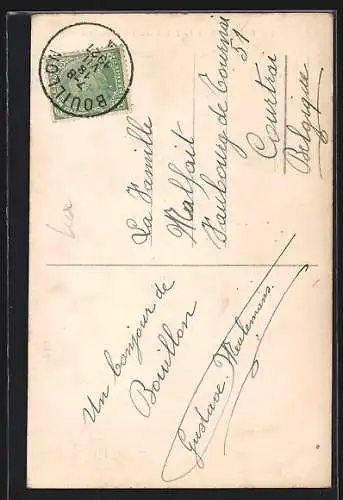 BOUILLON
La Famille
Malfait
Faubourg de Tournai
51
Courtrai
Belgique
Un bonjour de
Bouillon
Gustave